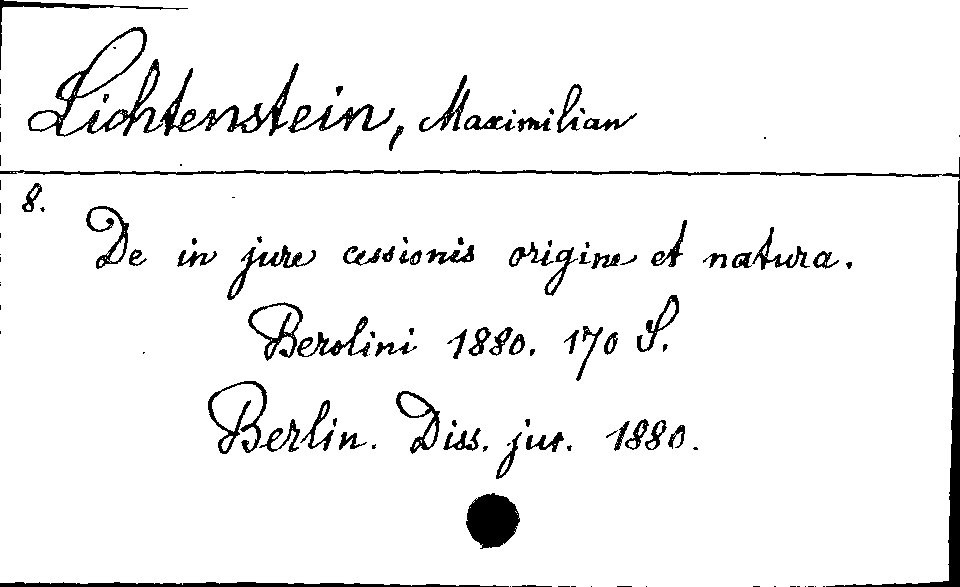 Lichtenstein, Maximilian
8.
De in jure cessionis origine et natura.
Berolini 1880. 170 S.
Berlin. Diss. jur. 1880.